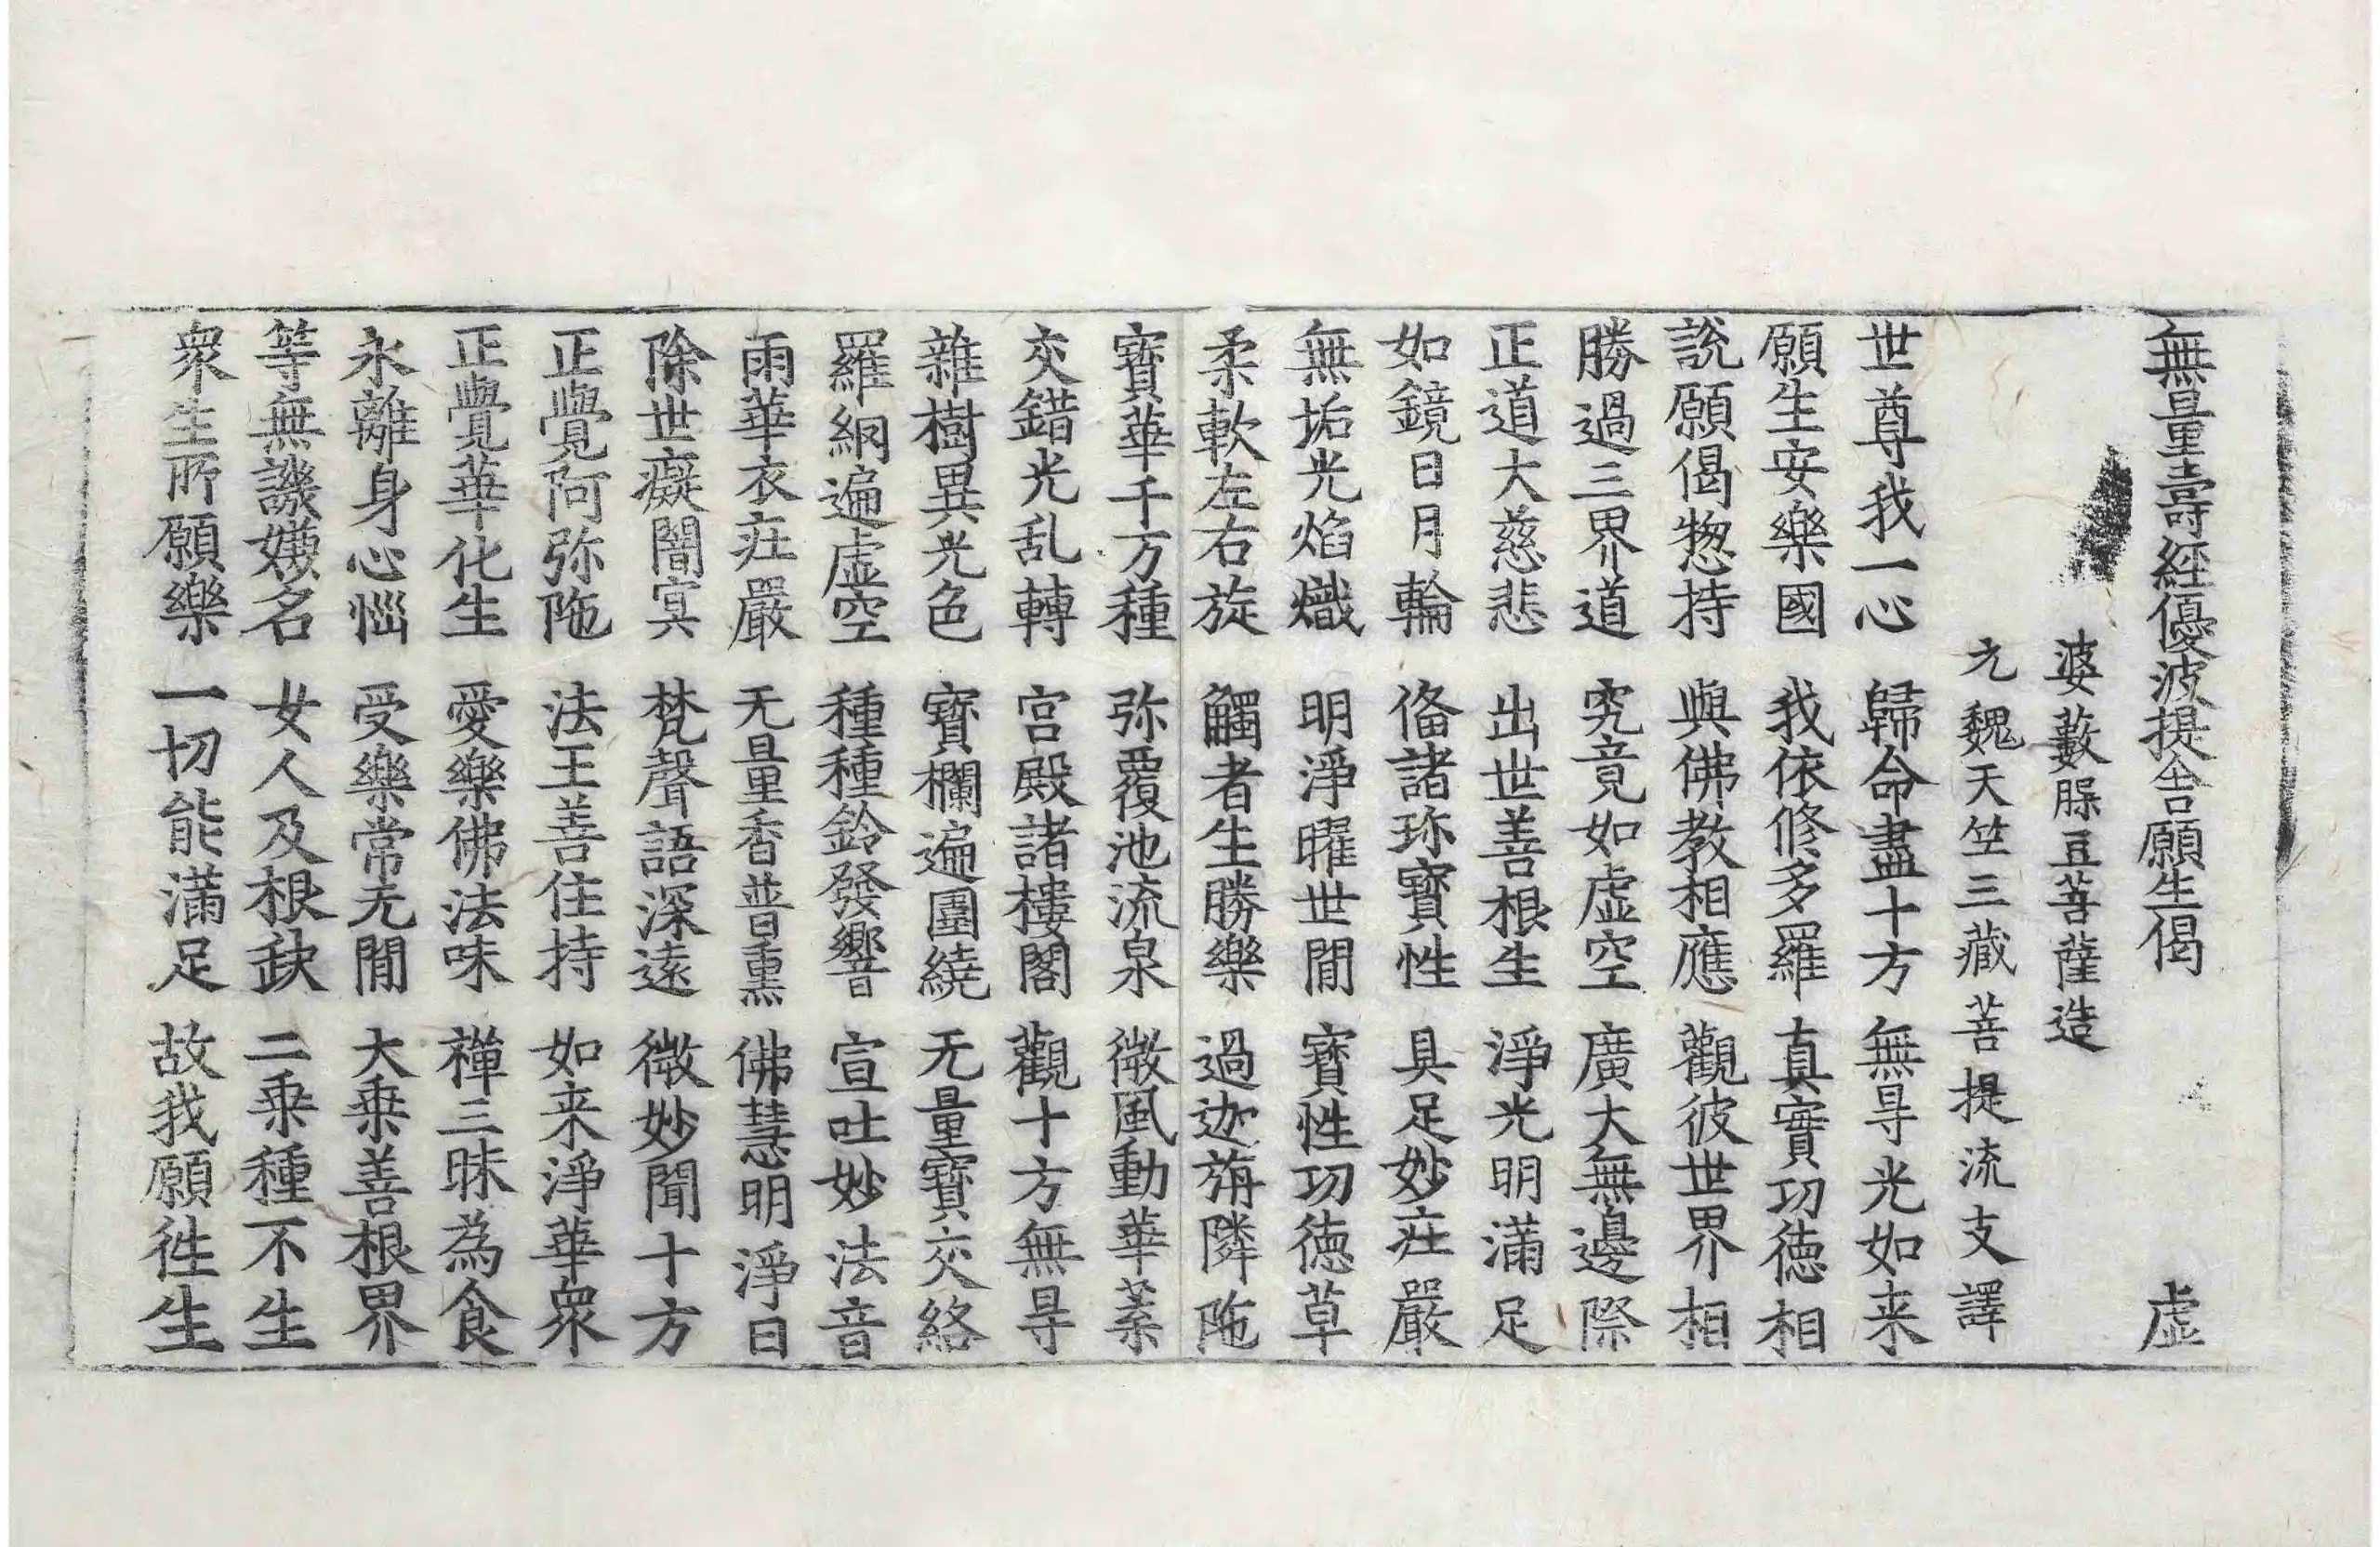 無量壽經優波提舍願生偈 虛
婆藪脲豆菩薩造
元魏天竺三藏菩提流支譯
世尊我一心 歸命盡十方 無㝵光如来
願生安樂國 我依修多羅 真實功徳相
說願偈惣持 與佛教相應 觀彼世界相
勝過三界道 究竟如虛空 廣大無邊際
正道大慈悲 出世善根生 淨光明滿足
如鏡日月輪 俻諸珎寶性 具足妙㽵嚴
無垢光焰熾 明淨曜世閒 寶性功徳草
柔軟左右旋 觸者生勝樂 過迦旃隣陁
寶華千万種 弥覆池流泉 微風動華葉
交錯光乱轉 宫殿諸樓閣 觀十方無㝵
雜樹異光色 寶欄遍圍繞 无量寶交絡
羅網遍虛空 種種鈴發響 宣吐妙法音
雨華衣㽵嚴 无量香普熏 佛慧明淨日
除世癡闇冥 梵聲語深遠 微妙聞十方
正覺阿弥陁 法王善住持 如来淨華衆
正覺華化生 愛樂佛法味 禪三昧為食
永離身心惱 受樂常无閒 大乗善根界
等無譏嫌名 女人及根𡙇 二乗種不生
衆生所願樂 一切能滿足 故我願徃生